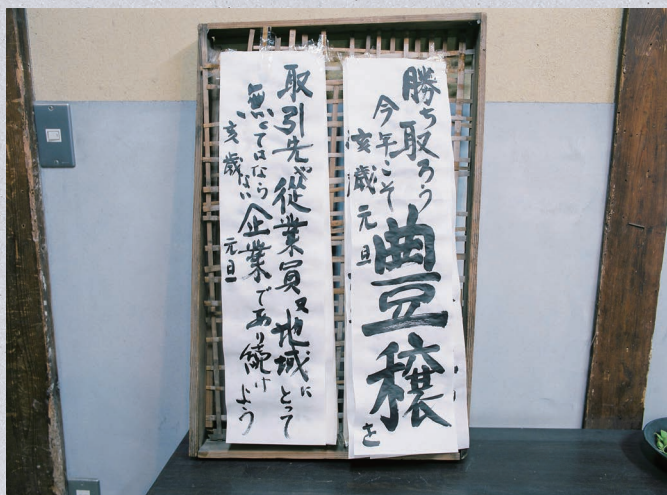 勝ち取ろう豊穣を
今年こそ
亥歳元旦
取引先が従業員又地域にとって
無くてはならない企業であり続けよう
亥歳元旦